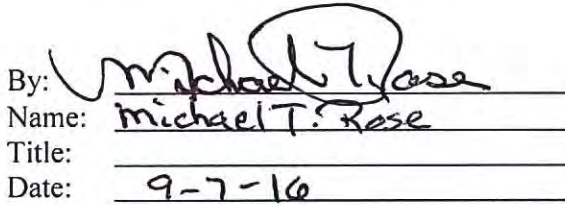 By: Michael T. Rose
Name: Michael T. Rose
Title:
Date: 9-7-16